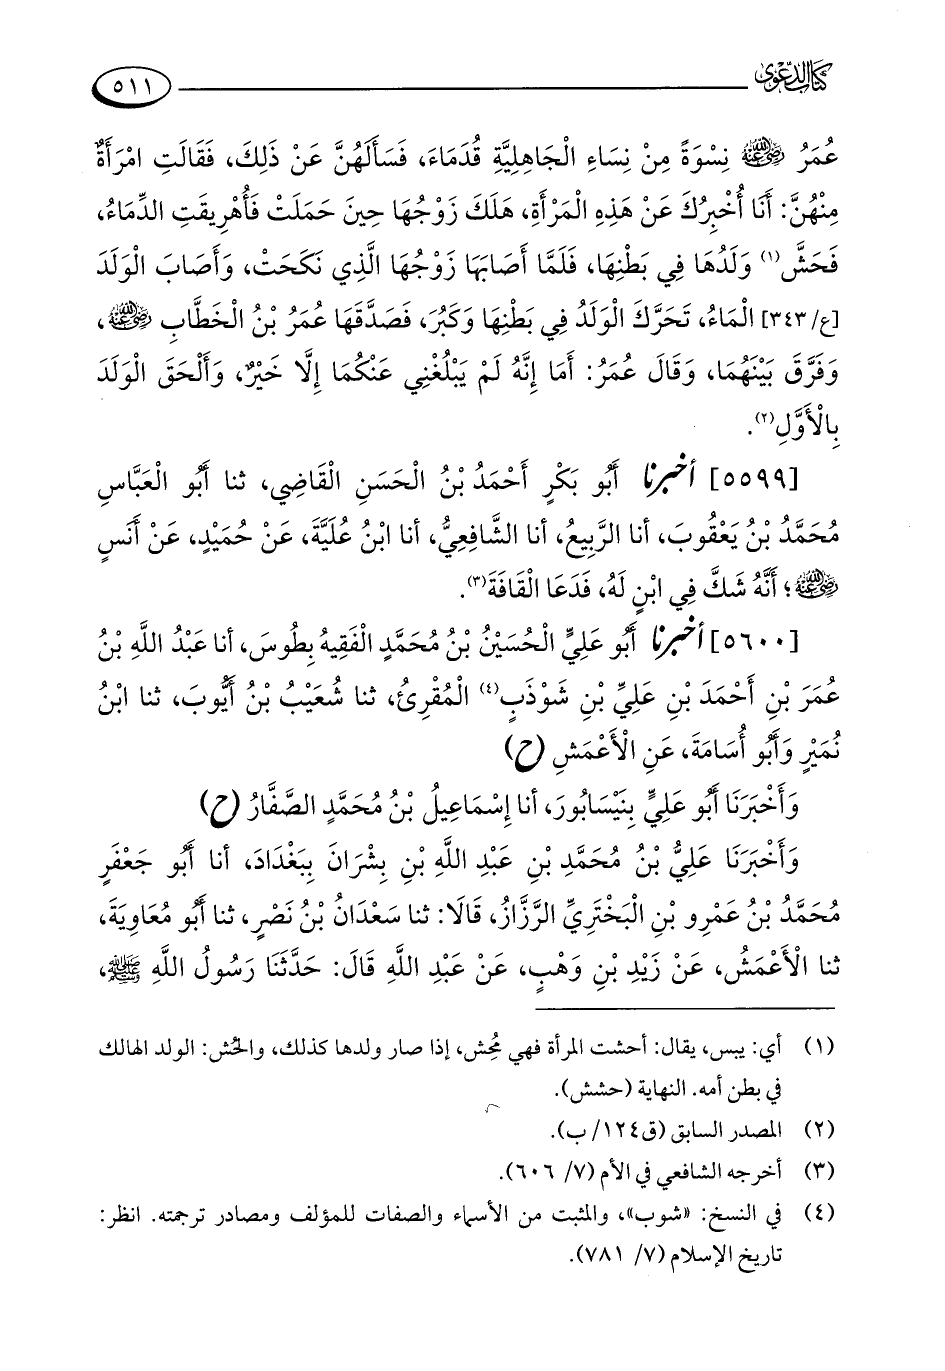 كتاب الدعوى
٥١١
عُمَرُ رضي الله عنه نِسْوَةً مِنْ نِسَاءِ الْجَاهِلِيَّةِ قُدَمَاءَ، فَسَأَلَهُنَّ عَنْ ذَلِكَ، فَقَالَتِ امْرَأَةٌ
مِنْهُنَّ: أَنَا أُخْبِرُكَ عَنْ هَذِهِ الْمَرْأَةِ، هَلَكَ زَوْجُهَا حِينَ حَمَلَتْ فَأُهْرِيقَتِ الدِّمَاءُ،
فَحَشَّ(١) وَلَدُهَا فِي بَطْنِهَا، فَلَمَّا أَصَابَهَا زَوْجُهَا الَّذِي نَكَحَتْ، وَأَصَابَ الْوَلَدَ
[ع/٣٤٣] الْمَاءُ، تَحَرَّكَ الْوَلَدُ فِي بَطْنِهَا وَكَبُرَ، فَصَدَّقَهَا عُمَرُ بْنُ الْخَطَّابِ رضي الله عنه،
وَفَرَّقَ بَيْنَهُمَا، وَقَالَ عُمَرُ: أَمَا إِنَّهُ لَمْ يَبْلُغْنِي عَنْكُمَا إِلَّا خَيْرٌ، وَأَلْحَقَ الْوَلَدَ
بِالْأَوَّلِ(٢).
[٥٥٩٩] أخبرنا أَبُو بَكْرٍ أَحْمَدُ بْنُ الْحَسَنِ الْقَاضِي، ثنا أَبُو الْعَبَّاسِ
مُحَمَّدُ بْنُ يَعْقُوبَ، أنا الرَّبِيعُ، أنا الشَّافِعِيُّ، أنا ابْنُ عُلَيَّةَ، عَنْ حُمَيْدٍ، عَنْ أَنَسٍ
رضي الله عنه؛ أَنَّهُ شَكَّ فِي ابْنٍ لَهُ، فَدَعَا الْقَافَةَ(٣).
[٥٦٠٠] أخبرنا أَبُو عَلِيٍّ الْحُسَيْنُ بْنُ مُحَمَّدٍ الْفَقِيهُ بِطُوسَ، أنا عَبْدُ اللَّهِ بْنُ
عُمَرَ بْنِ أَحْمَدَ بْنِ عَلِيِّ بْنِ شَوْذَبٍ(٤) الْمُقْرِئُ، ثنا شُعَيْبُ بْنُ أَيُّوبَ، ثنا ابْنُ
نُمَيْرٍ وَأَبُو أُسَامَةَ، عَنِ الْأَعْمَشِ (ح)
وَأَخْبَرَنَا أَبُو عَلِيٍّ بِنَيْسَابُورَ، أنا إِسْمَاعِيلُ بْنُ مُحَمَّدٍ الصَّفَّارُ (ح)
وَأَخْبَرَنَا عَلِيُّ بْنُ مُحَمَّدِ بْنِ عَبْدِ اللَّهِ بْنِ بِشْرَانَ بِبَغْدَادَ، أنا أَبُو جَعْفَرٍ
مُحَمَّدُ بْنُ عَمْرِو بْنِ الْبَخْتَرِيِّ الرَّزَّازُ، قَالَا: ثنا سَعْدَانُ بْنُ نَصْرٍ، ثنا أَبُو مُعَاوِيَةَ،
ثنا الْأَعْمَشُ، عَنْ زَيْدِ بْنِ وَهْبٍ، عَنْ عَبْدِ اللَّهِ قَالَ: حَدَّثَنَا رَسُولُ اللَّهِ ﷺ،
(١) أي: يبس، يقال: أحشت المرأة فهي مُحِش، إذا صار ولدها كذلك، والحُش: الولد الهالك
في بطن أمه. النهاية (حشش).
(٢) المصدر السابق (ق١٢٤/ ب).
(٣) أخرجه الشافعي في الأم (٧/ ٦٠٦).
(٤) في النسخ: «شوب»، والمثبت من الأسماء والصفات للمؤلف ومصادر ترجمته. انظر:
تاريخ الإسلام (٧/ ٧٨١).